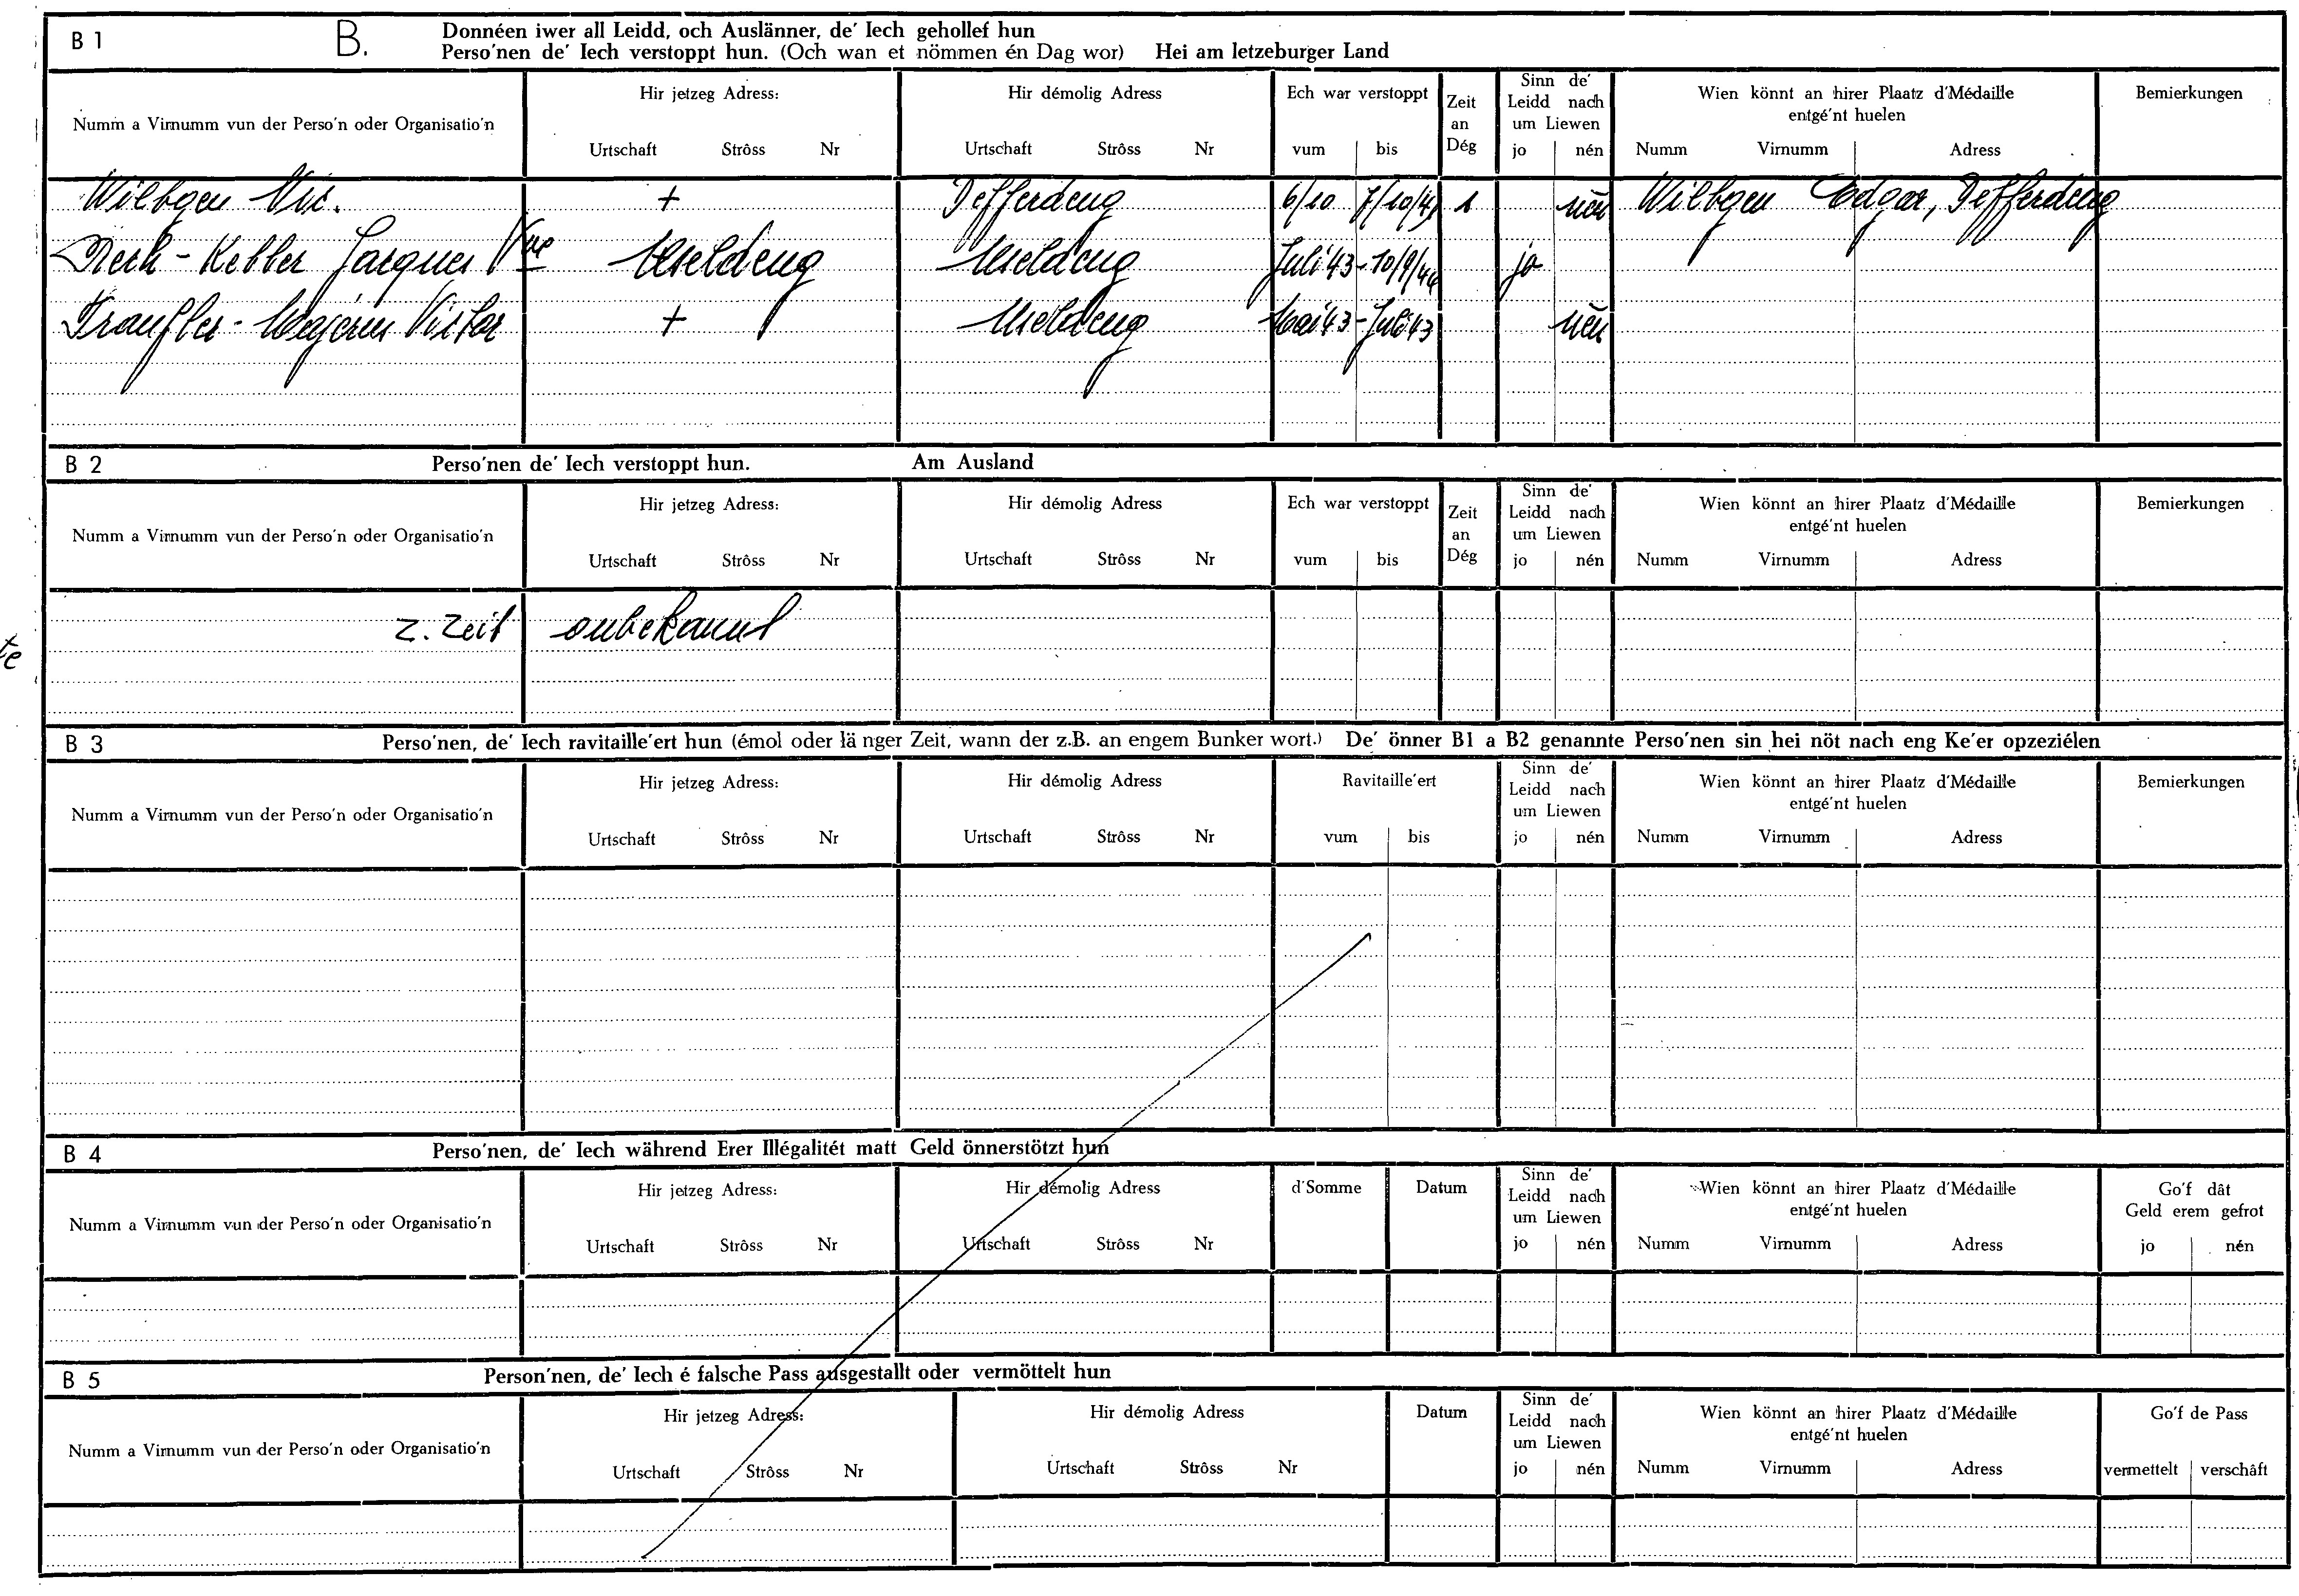 B 1 B. Donnéen iwer all Leidd, och Auslänner, de' Iech gehollef hun
Perso'nen de' Iech verstoppt hun. (Och wan et nömmen én Dag wor) Hei am letzeburger Land
Numm a Virnumm vun der Perso'n oder Organisatio'n
Hir jetzeg Adress:
Urtschaft Strôss Nr
Hir démolig Adress
Urtschaft Strôss Nr
Ech war verstoppt
vum bis
Zeit
an
Dég
Sinn de'
Leidd nach
um Liewen
jo nén
Wien könnt an hirer Plaatz d'Médaille
entgé'nt huelen
Numm Virnumm Adress
Bemierkungen
Wilbgen Nic. + Defferdeng 6/10 7/10/4 1 nén Wilbgen Edgar, Defferdeng
Jacques Vve Useldeng Useldeng Juli 43 - 10/9/44 jo
Victor + Useldeng Mai 43 - Juli 43 nén
B 2 Perso'nen de' Iech verstoppt hun. Am Ausland
Numm a Virnumm vun der Perso'n oder Organisatio'n
Hir jetzeg Adress:
Urtschaft Strôss Nr
Hir démolig Adress
Urtschaft Strôss Nr
Ech war verstoppt
vum bis
Zeit
an
Dég
Sinn de'
Leidd nach
um Liewen
jo nén
Wien könnt an hirer Plaatz d'Médaille
entgé'nt huelen
Numm Virnumm Adress
Bemierkungen
z. Zeit onbekannt
te
B 3 Perso'nen, de' Iech ravitaille'ert hun (émol oder länger Zeit, wann der z.B. an engem Bunker wort.) De' önner B1 a B2 genannte Perso'nen sin hei nöt nach eng Ke'er opzeziélen
Numm a Virnumm vun der Perso'n oder Organisatio'n
Hir jetzeg Adress:
Urtschaft Strôss Nr
Hir démolig Adress
Urtschaft Strôss Nr
Ravitaille'ert
vum bis
Sinn de'
Leidd nach
um Liewen
jo nén
Wien könnt an hirer Plaatz d'Médaille
entgé'nt huelen
Numm Virnumm Adress
Bemierkungen
B 4 Perso'nen, de' Iech während Erer Illégalitét matt Geld önnerstötzt hun
Numm a Virnumm vun der Perso'n oder Organisatio'n
Hir jetzeg Adress:
Urtschaft Strôss Nr
Hir démolig Adress
Urtschaft Strôss Nr
d'Somme
Datum
Sinn de'
Leidd nach
um Liewen
jo nén
Wien könnt an hirer Plaatz d'Médaille
entgé'nt huelen
Numm Virnumm Adress
Go'f dât
Geld erem gefrot
jo nén
B 5 Person'nen, de' Iech é falsche Pass ausgestallt oder vermöttelt hun
Numm a Virnumm vun der Perso'n oder Organisatio'n
Hir jetzeg Adress:
Urtschaft Strôss Nr
Hir démolig Adress
Urtschaft Strôss Nr
Datum
Sinn de'
Leidd nach
um Liewen
jo nén
Wien könnt an hirer Plaatz d'Médaille
entgé'nt huelen
Numm Virnumm Adress
Go'f de Pass
vermettelt verschâft